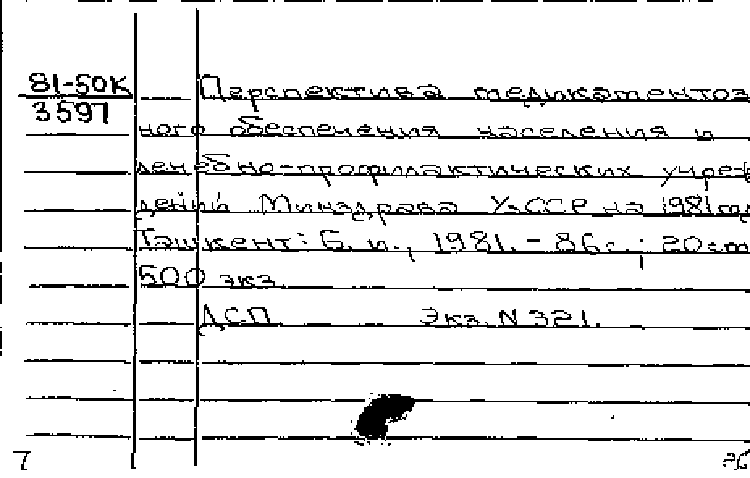 81-50К
3597
Перспектива медикаментоз
ного обеспечения населения и
лечебно-профилактических учреж
дений Минздрава УзССР на 1981
Ташкент: Б. и., 1981. - 86с.; 20см
500 экз.
ДСП Экз. N 321.
7